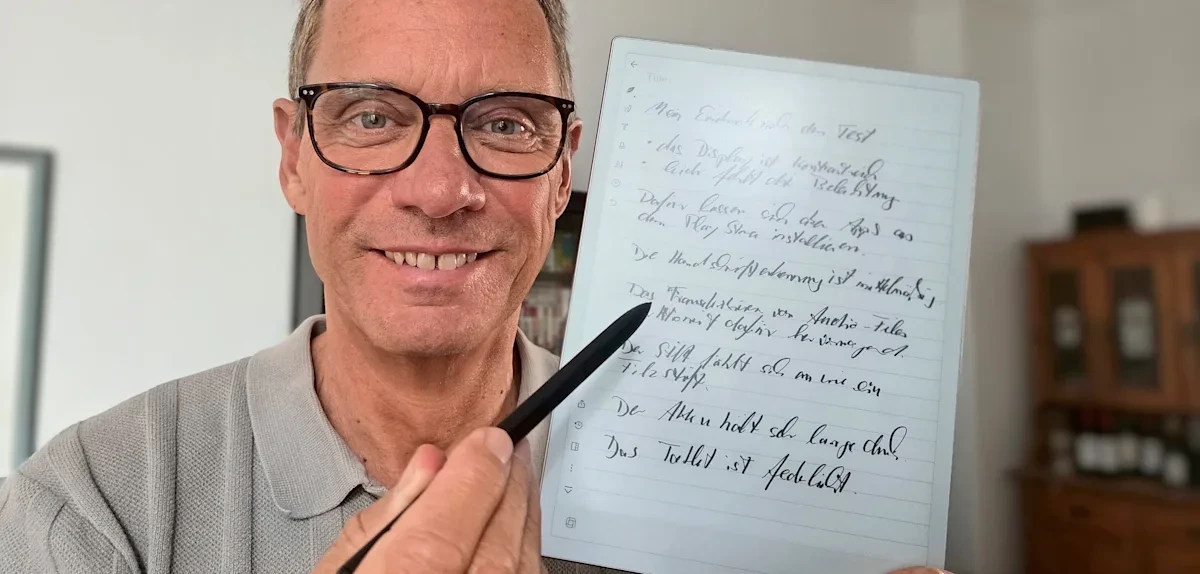 Title
Mein Eindruck nach dem Test
• das Display ist kontrastreich
• leider fehlt die Beleuchtung
Dafür lassen sich den Apps aus
dem Play Store installieren.
Die Handschrifterkennung ist mittelmäßig
Das Transkribieren von Audio-Files
kommt dafür hervorragend.
Der Stift fühlt sich an wie ein
Filzstift.
Der Akku hält sehr lange durch
Das Tablet ist federleicht.